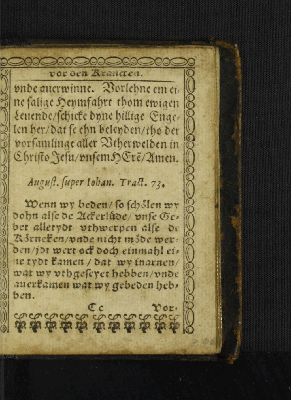 vor den Krancken.
vnde auerwinne. Vorlehne em ei-
ne salige Heymfahrt thom ewigen
Leuende/schicke dyne hillige Enge-
len her/dat se ehn beleyden/tho der
vorsamlinge aller Vtherwelden in
Christo Jesu/vnsem HErē/Amen.
August. super Iohan. Tract. 73.
Wenn wy beden/so schölen wy
dohn alse de Ackerlüde/vnse Ge-
bet alletydt vthwerpen alse de
Körneken/vnde nicht möde wer-
den/jdt wert ock doch einmahl ei-
ne tydt kamen/dat wy inarnen/
wat wy vthgeseyet hebben/vnde
auerkamen wat wy gebeden heb-
ben.
Cc Vor-